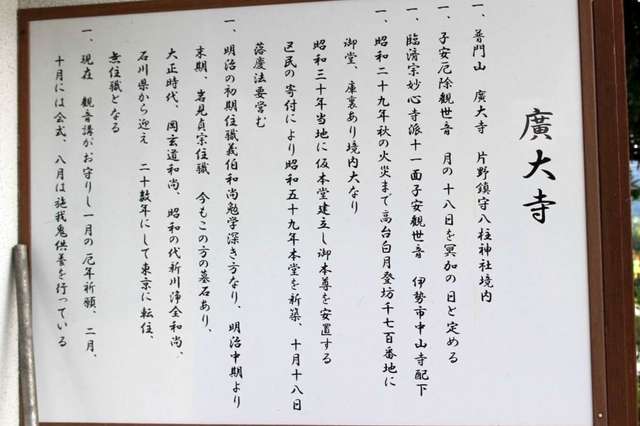 廣大寺
一、普門山　廣大寺　片野鎮守八柱神社境内
一、子安厄除観世音　月の十八日を冥加の日と定める
一、臨済宗妙心寺派十一面子安観世音　伊勢市中山寺配下
一、昭和二十九年秋の火災まで高台白月登坊千七百番地に
御堂、庫裏あり境内大なり
昭和三十年当地に仮本堂建立し御本尊を安置する
区民の寄付により昭和五十九年本堂を新築、十月十八日
落慶法要営む
一、明治の初期住職義伯和尚勉学深き方なり、明治中期より
末期、岩見貞宗住職　今もこの方の墓石あり、
大正時代、岡玄道和尚、昭和の代新川浄全和尚、
石川県から迎え　二十数年にして東京に転住、
無住職となる
一、現在　観音講がお守りし一月の厄年祈願、二月、
十月には会式、八月は施我鬼供養を行っている